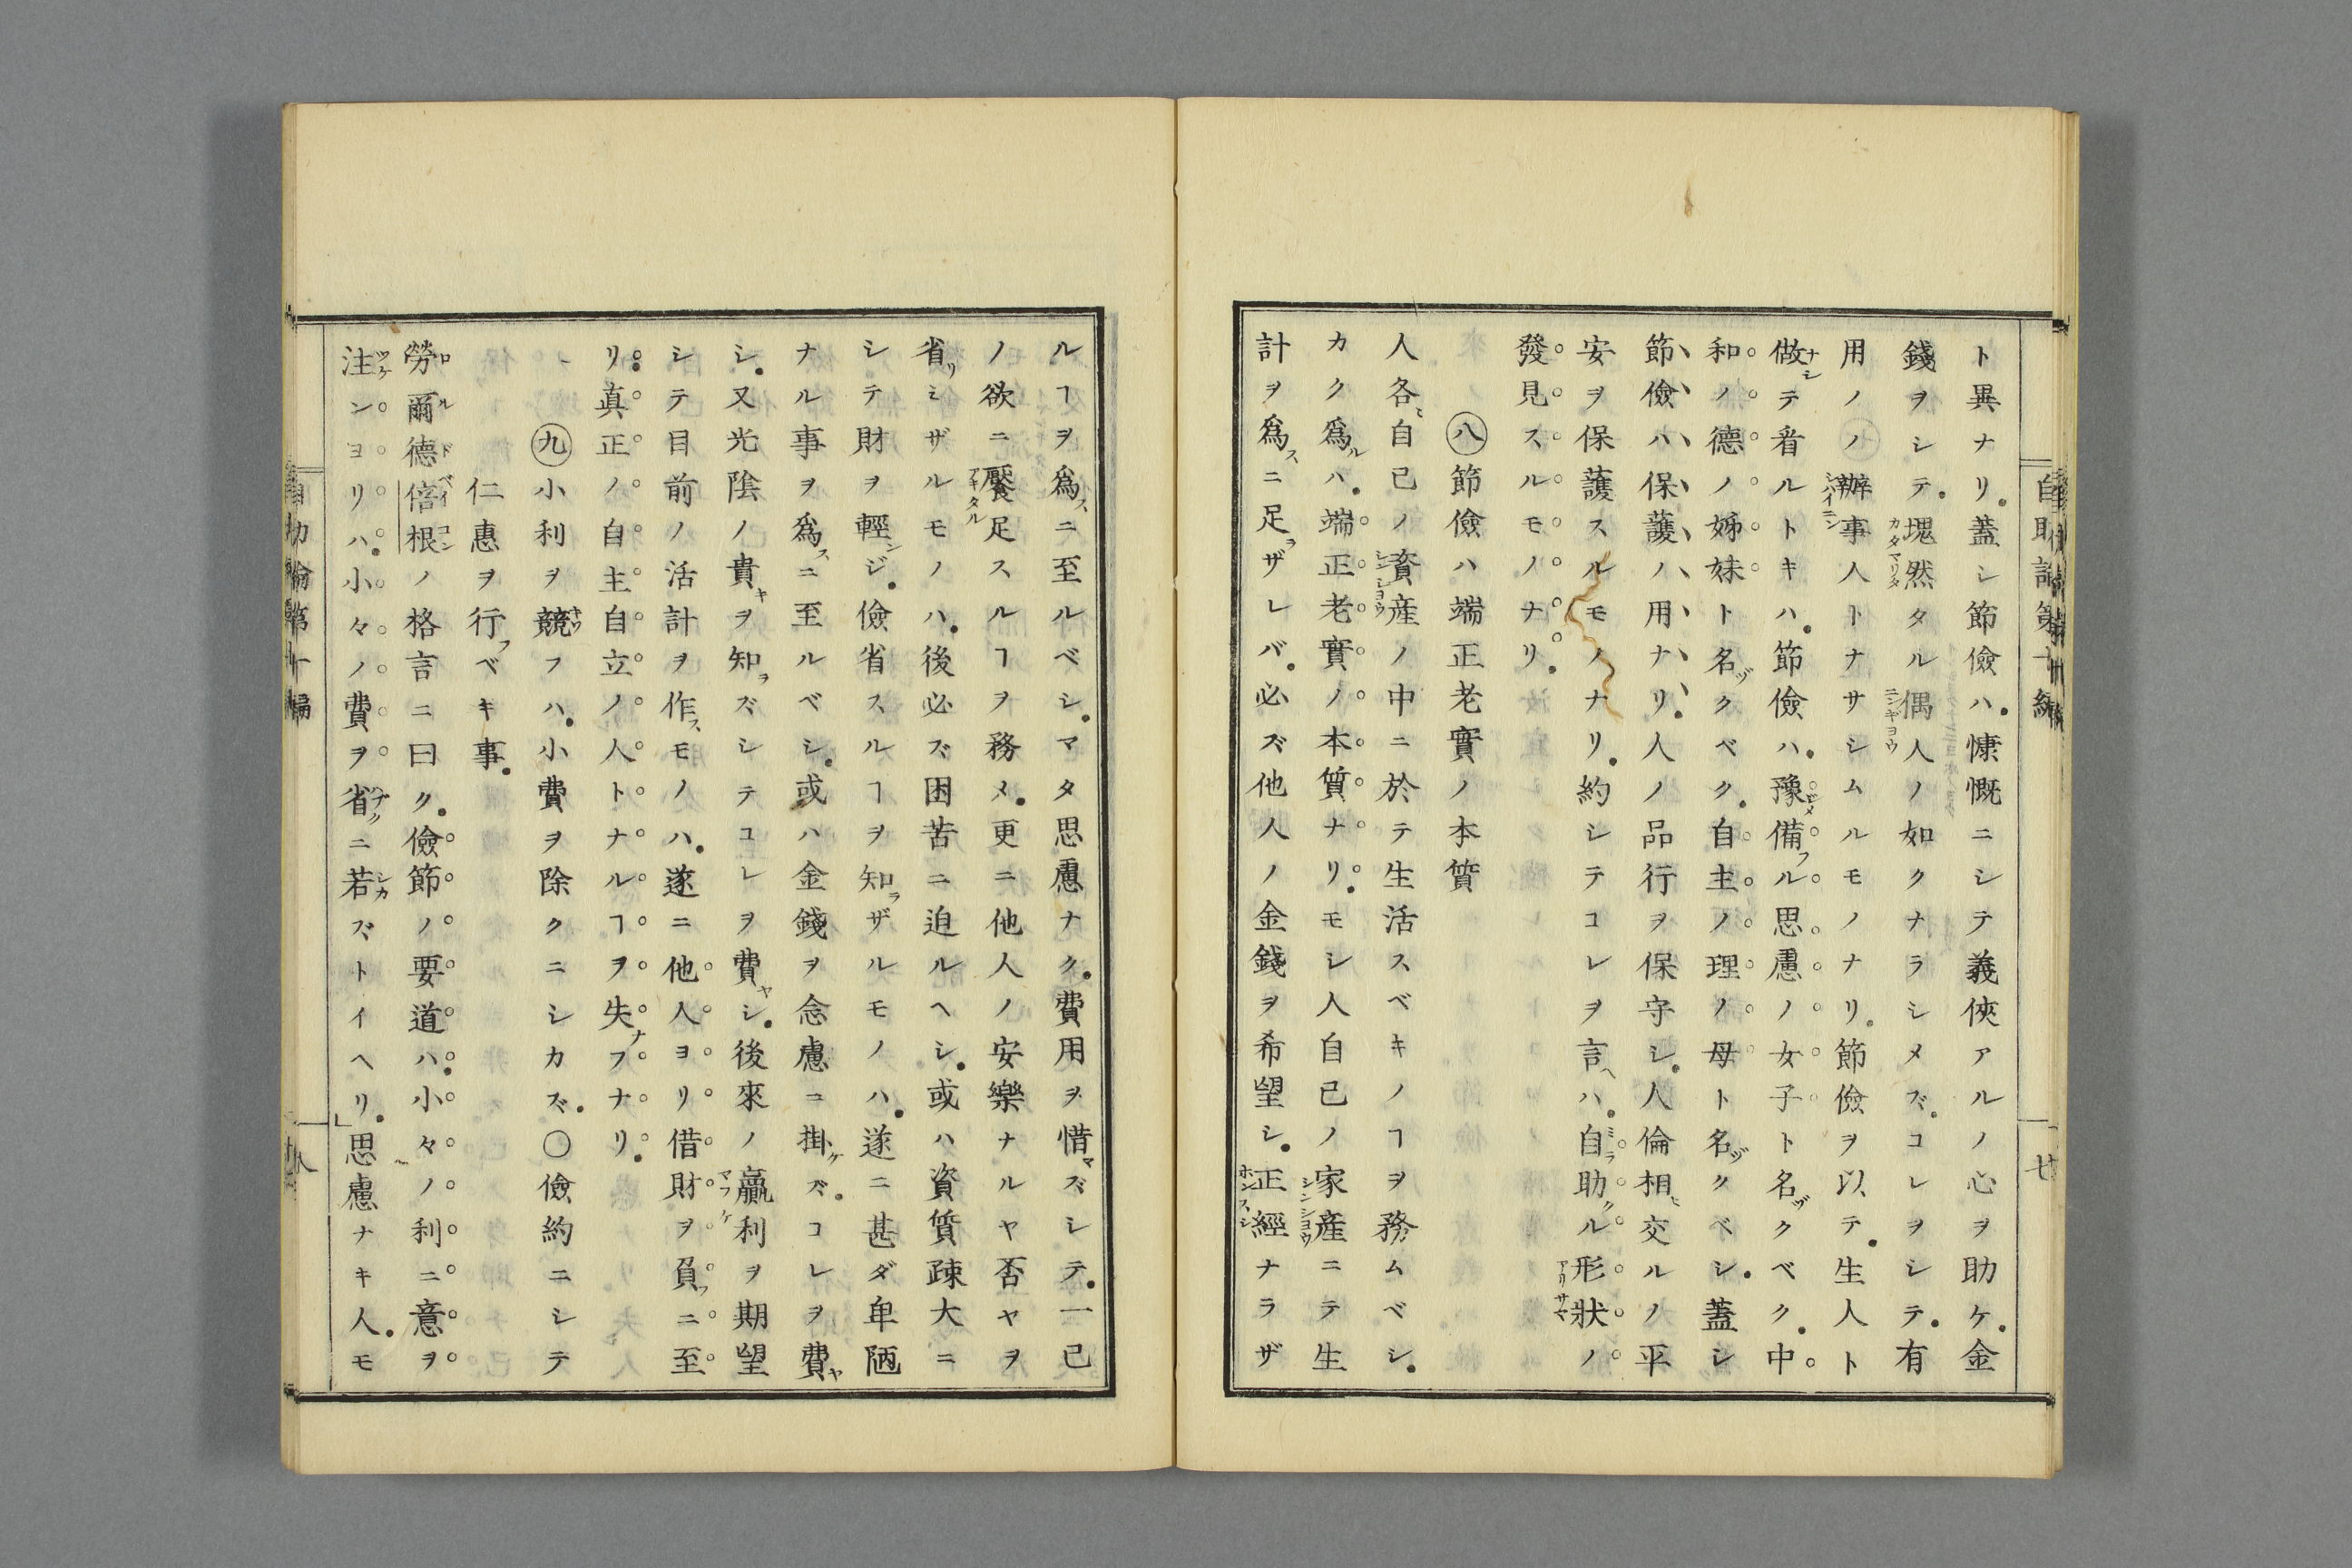 ト異ナリ。蓋シ節儉ハ。慷慨ニシテ義俠アルノ心ヲ助ケ。金
錢ヲシテ。塊然タル偶人ノ如クナラシメズ。コレヲシテ。有
用ノ辦事人トナサシムルモノナリ。節儉ヲ以テ。生人ト
做テ看ルトキハ。節儉ハ。豫備フル思慮ノ女子ト名ヅクベク。中
和ノ德ノ姊妹ト名ヅクベク。自主ノ理ノ母ト名ヅクベシ。蓋シ
節儉ハ保護ノ用ナリ。人ノ品行ヲ保守シ。人倫相交ルノ平
安ヲ保護スルモノナリ。約シテコレヲ言ヘハ。自助クル形狀ノ
發見スルモノナリ。
八 節儉ハ端正老實ノ本質
人各〻自己ノ資産ノ中ニ於テ生活スベキノヿヲ務ムベシ。
カク爲ルハ。端正老實ノ本質ナリ。モシ人自己ノ家産ニテ生
計ヲ爲スニ足ラザレバ。必ズ他人ノ金錢ヲ希望シ。正經ナラザ
ルヿヲ爲スニ至ルベシ。マタ思慮ナク。費用ヲ惜マズシテ。一己
ノ欲ニ饜足スルヿヲ務メ。更ニ他人ノ安樂ナルヤ否ヤヲ
省リミザルモノハ。後必ズ困苦ニ迫ルヘシ。或ハ資質疎大ニ
シテ財ヲ輕ンジ。儉省スルヿヲ知ラザルモノハ。遂ニ甚ダ卑陋
ナル事ヲ爲スニ至ルベシ。或ハ金錢ヲ念慮ニ掛ケズ。コレヲ費ヤ
シ。又光陰ノ貴キヲ知ラズシテコレヲ費ヤシ。後來ノ贏利ヲ期望
シテ目前ノ活計ヲ作スモノハ。遂ニ他人ヨリ借財ヲ負フニ至
リ。真正ノ自主自立ノ人トナルヿヲ失ナフナリ。
九 小利ヲ競フハ。小費ヲ除クニシカズ。〇儉約ニシテ
仁惠ヲ行フベキ事。
勞爾德倍根ノ格言ニ曰ク。儉節ノ要道ハ。小々ノ利ニ意ヲ
注ンヨリハ。小々ノ費ヲ省クニ若カズトイヘリ。」思慮ナキ人。モ